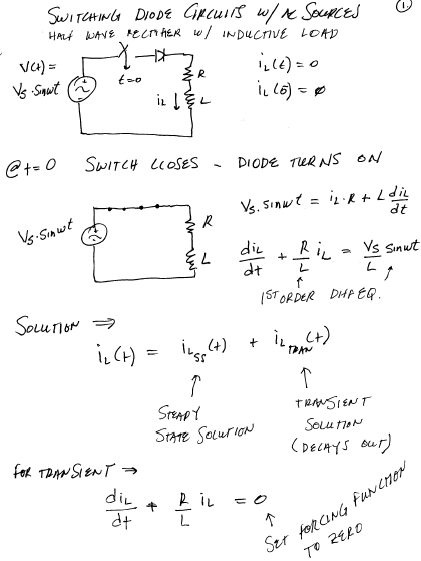 SWITCHING DIODE CIRCUITS W/ AC SOURCES
①
HALF WAVE RECTIFIER W/ INDUCTIVE LOAD
V(t) =
Vs·Sinωt
t=0
R
iL ↓
L
iL(t) = 0
iL(0) = 0
@t=0 SWITCH CLOSES - DIODE TURNS ON
Vs·Sinωt
R
L
Vs·sinωt = iL·R + L diL/dt
diL/dt + R/L iL = Vs/L sinωt
1ST ORDER DIFF EQ.
SOLUTION ⇒
iL(t) = iLSS(t) + iLTRAN(t)
STEADY
STATE SOLUTION
TRANSIENT
SOLUTION
(DECAYS OUT)
FOR TRANSIENT ⇒
diL/dt + R/L iL = 0
SET FORCING FUNCTION
TO ZERO